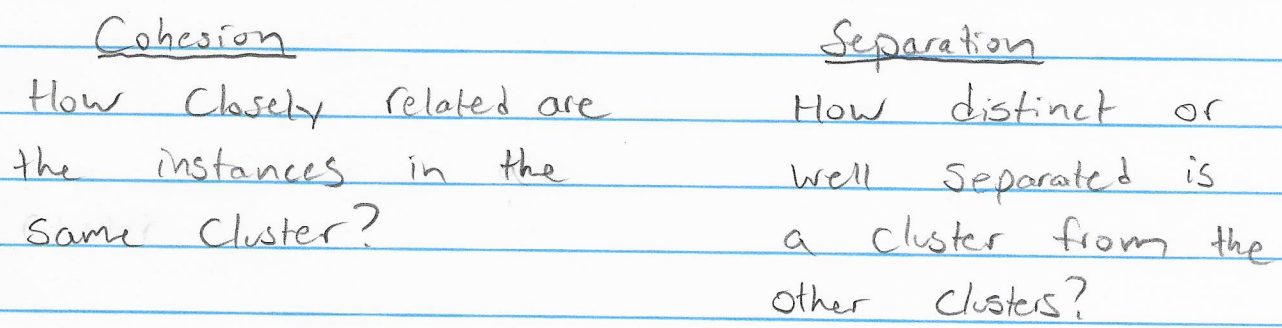 Cohesion
How Closely related are
the instances in the
same Cluster?
Separation
How distinct or
well Separated is
a cluster from the
other Clusters?